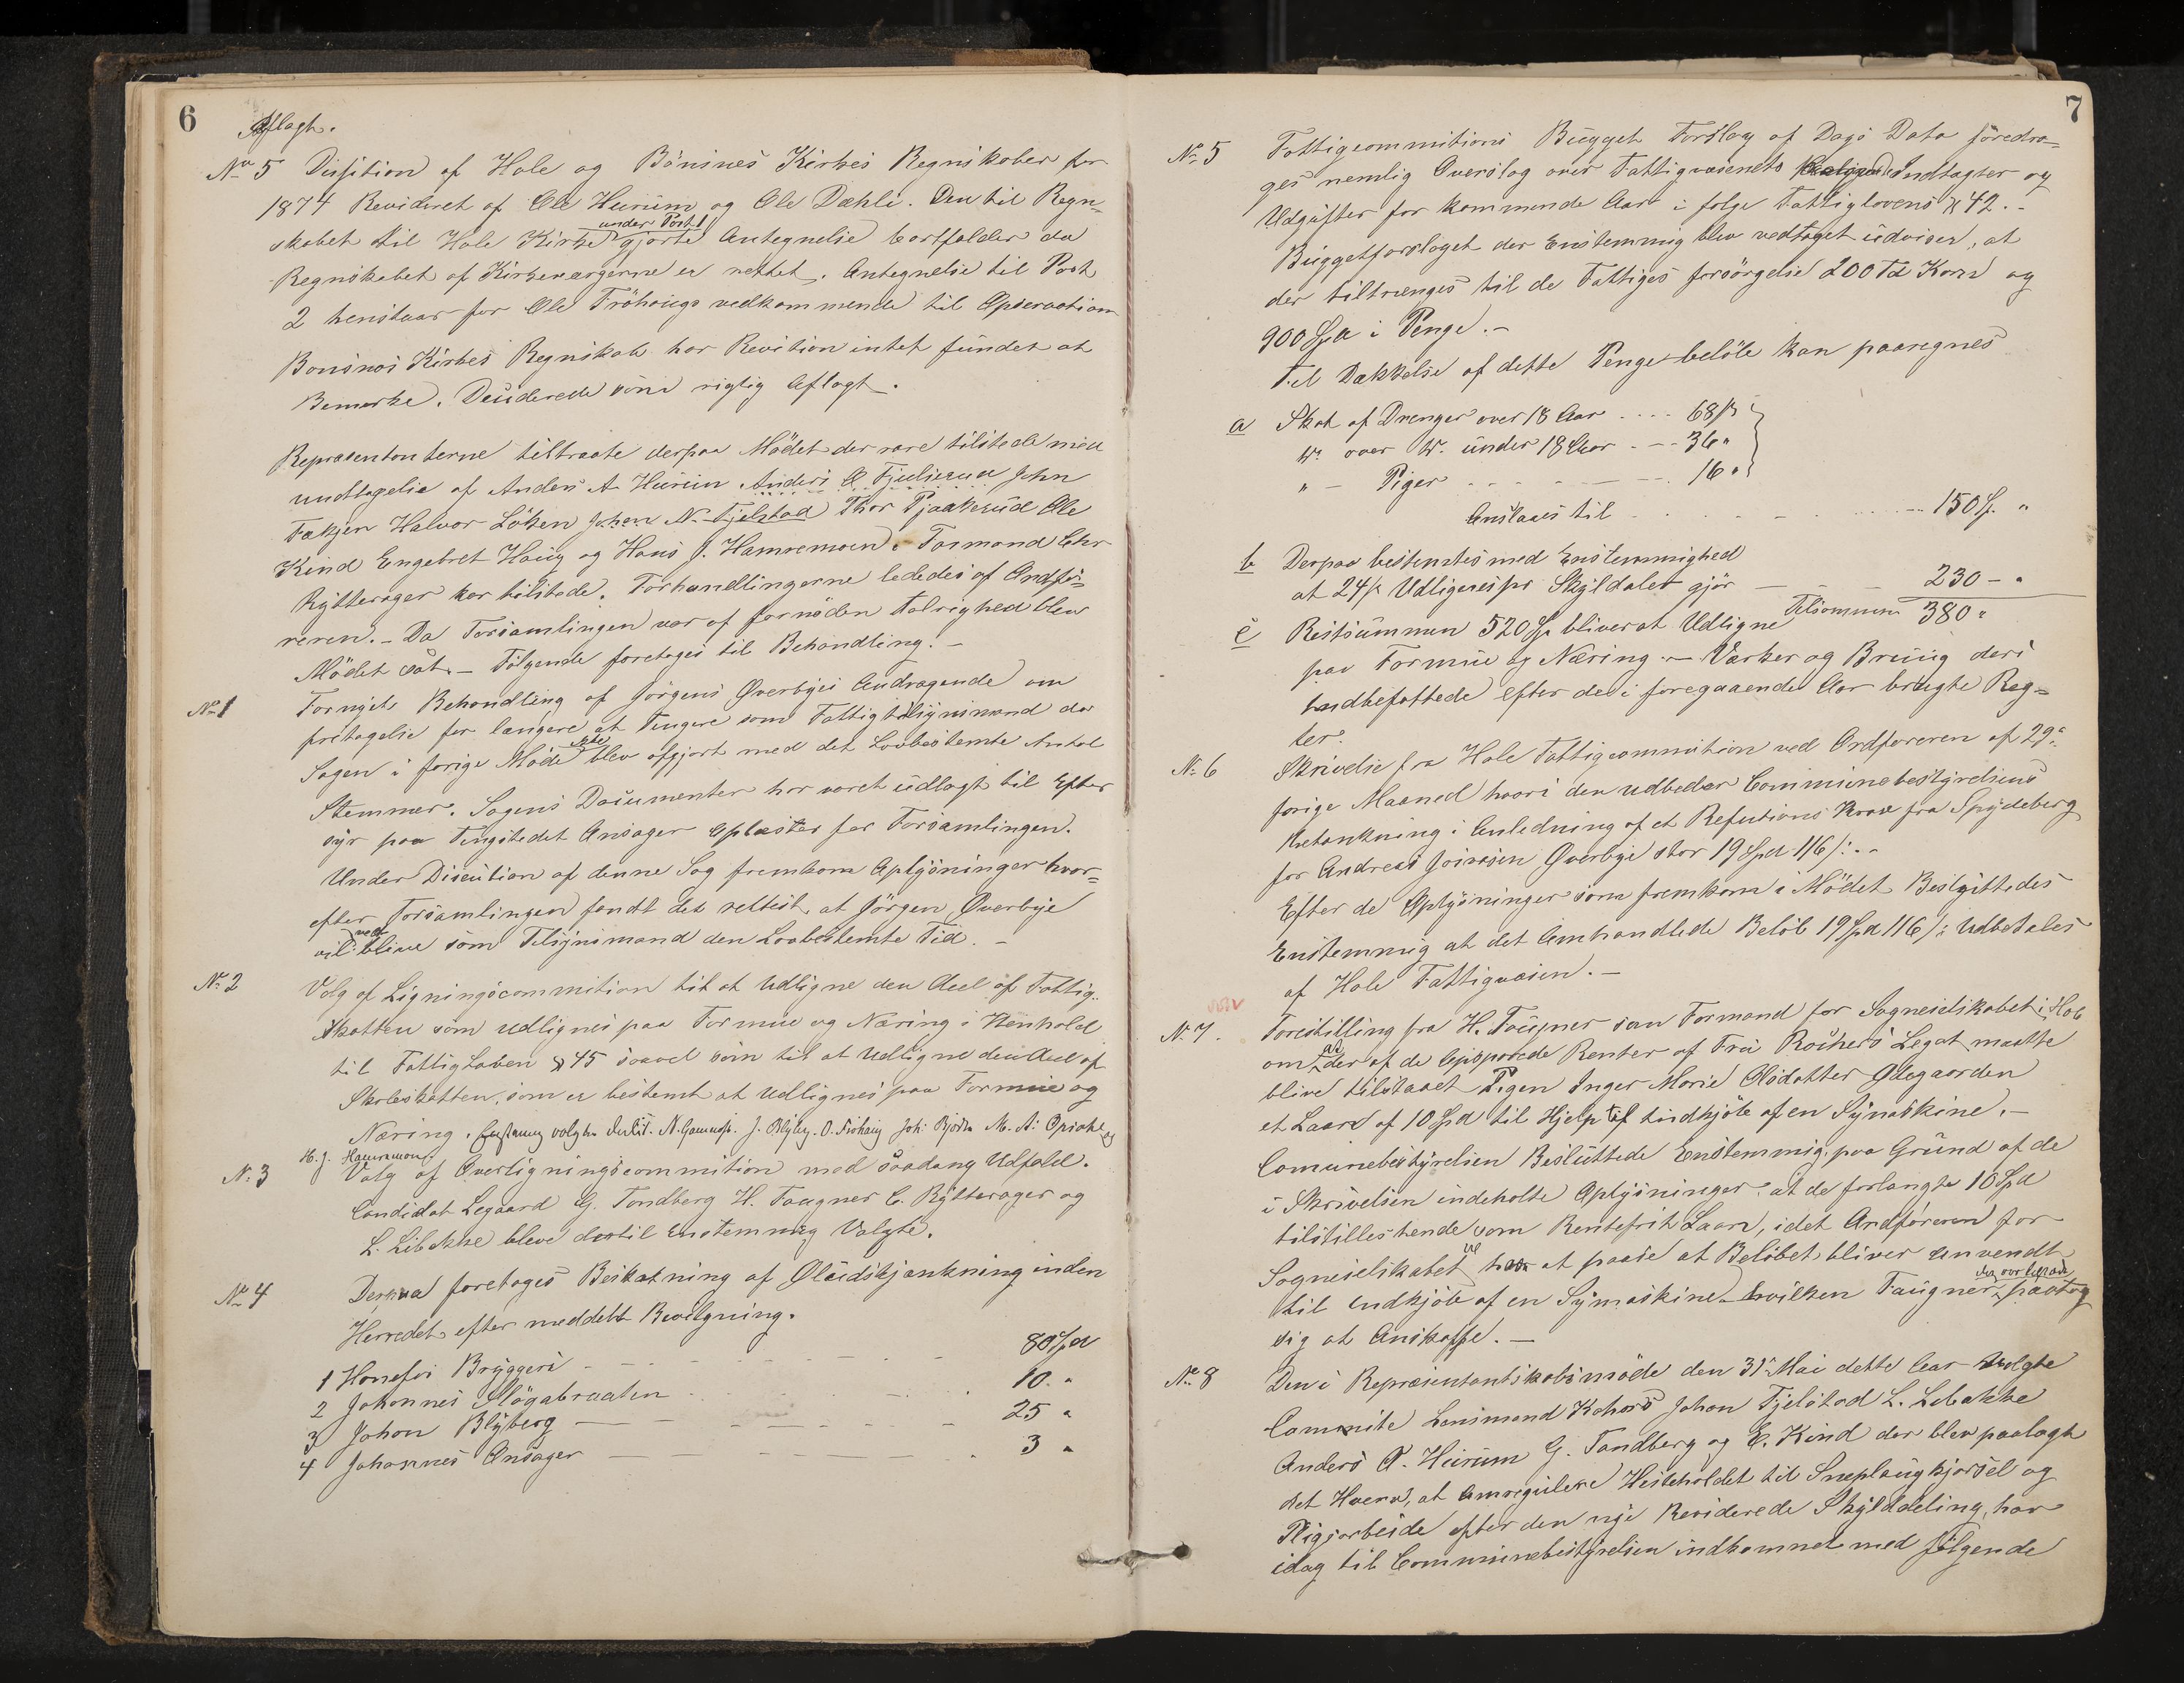 6
Aflagt.
No 5 Desition af Hole og Bönsnes Kirkes Regnskaber for
1874 Revideret af Ole Hurum og Ole Dæhli. Den til Regn-
skabet til Hole Kirke under Post 1 gjorte Antegnelse bortfalder da
Regnskabet af Kirkeværgerne er rettet. Antegnelse til Post
2 henstaar for Ole Fröhaugs vedkommende til Opservation
Bonsnes Kirkes Regnskab har Revition intet fundet at
Bemerke. Desiderede som rigtig Aflagt.
Repræsentanterne tiltraate derpaa Mödet der vare tilstede med
undtagelse af Anders A Hurum Anders O Fjulsrud John
Fækjær Halvor Löken Johan N. Fjelstad Thor Pjaakerud Ole
Kind Engebret Haug og Hans J. Hamremoen. Formand Chr
Rytterager var tilstede. Forhandlingerne lededes af Ordfö-
reren. - Da Forsamlingen var af fornöden Talrighed blev
Mödet sat. - Fölgende foretages til Behandling. -
No 1 Fornyet Behandling af Jörgens Øverbyes Andragende om
fritagelse for længere at Fungere som Fattigtilsynsmand da
Sagen i forige Möde ikke blev afgjort med det Lovbestemte Antal
Stemmer. Sagens Documenter har været udlagt til Efter
syn paa Tingstedet Onsager oplæstes for Forsamlingen.
Under Discution af denne Sag fremkom Oplysninger hvor-
efter Forsamlingen fandt det rettest, at Jörgen Øverbye
vil vedblive som Tilsynsmand den Lovbestemte Tid. -
No 2 Valg af Ligningscommition til at Udligne den Deel af Fattig-
skatten som udlignes paa Formue og Næring i Henhold
til Fattigloven § 45 saavel som til at Udligne den Deel af
Skoleskatten, som er bestemt at Udlignes paa Formue og
Næring. Enstemmig valgtes J. Blyberg. O. Fröhaug Joh: Bjørke M. A: Opsahl og
H. J. Hamremoen.
N. 3 Valg af Overligningscommition med saadang Udfald.
Candidat Legaard G. Tandberg H. Faugner C. Rytterager og
L. Libakke bleve dertil Enstemmig Valgte.
No 4 Derpaa foretages Beskatning af Øludskjænkning inden
Herredet efter meddelt Bevilgning.
1 Honefos Bryggeri 80 Spd
2 Johannes Slögabraaten 10. "
3 Johan Blyberg 25 "
4 Johannes Onsager 3 "
7
No 5 Fattigcommitions Bugget Forslag af Dags Dato foredra-
ges nemlig Overslag over Fattigvæsenets Indtægter og
Udgifter for kommende Aar i følge Fattiglovens § 42. -
Buggetforslaget der Enstemmig blev vedtaget udviser, at
der tiltrænges til de Fattiges forsörgelse 200 Td Korn og
900 Spd i Penge. -
Til Dækkelse af dette Penge-belöb kan paaregnes
a Skat af Drenger over 18 Aar .... 68 ß
W. over W. under 18 Aar - - 36 "
" - Piger - - - - 16 "
Anslaaes til 150 Sp. "
b Derpaa bestemtes med Enstemmighed
at 24 ß Udlignes pr Skylddaler gjör - 230 - "
Tilsammen 380 "
c Restsummen 520 Sp bliver at Udligne
paa Formue og Næring. - Værker og Brug deri
Indbefattede efter de i foregaaende Aar brugte Reg-
ler.
No 6 Skrivelse fra Hole Fattigcommition ved Ordføreren af 29de
forige Maaned hvori den udbeder Communebestyrelsens
Betænkning i Anledning af et Refutions Krav fra Spydeberg
for Andreas Josvasen Øverbye stor 19 Spd 116 ß. -
Efter de Oplysninger som fremkom i Mödet Besluttedes
Enstemmig at det Omhandlede Belöb 19 Spd 116 ß Udbetales
af Hole Fattigvæsen. -
No 7. Forestilling fra H. Faugner som Formand for Sogneselskabet i Hole
om at der af de opsparede Renter af Fru Röhers Legat maatte
blive tilstaaet Pigen Inger Marie Olsdatter Ødegaarden
et Laan af 10 Spd til Hjelp til Indkjöb af en Symaskine. -
Comunebestyrelsen Besluttede Enstemmig paa Grund af de
i Skrivelsen indeholte Oplysninger at de forlangte 10 Spd
tilstilles hende som Rentefrit Laan, idet Ordføreren for
Sogneselskabet at paase at Belöbet bliver anvendt
til Indkjöb af en Symaskine hvilken Faugner der var tilstede paatog
sig at Anskaffe. -
No 8 Den i Repræsentantskabsmöde den 31te Mai dette Aar valgte
Commite Lensmand Kohrs Johan Fjelstad L. Libakke
Anders A. Hurum G. Tandberg og E. Kind der blev paalagt
det Hverv, at Omregulere Hesteholdet til Sneplougkjørsel og
Pligtarbeide efter den nye Reviderede Skylddeling, har
idag til Communebestyrelsen indkommet med fölgende